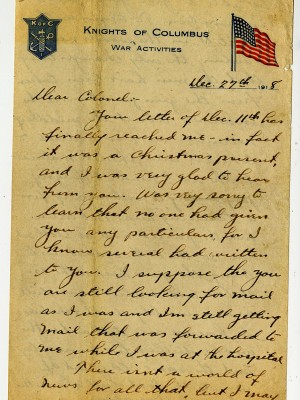 K of C
KNIGHTS OF COLUMBUS
WAR ACTIVITIES
Dec. 27th 1918
Dear Colonel:-
Your letter of Dec. 11th has
finally reached me - in fact
it was a Christmas present,
and I was very glad to hear
from you. Was very sorry to
learn that no one had given
you any particulars, for I
know several had written
to you. I suppose tho you
are still looking for mail
as I was and I'm still getting
mail that was forwarded to
me while I was at the hospital
There isnt a world of
news for all that, but I may